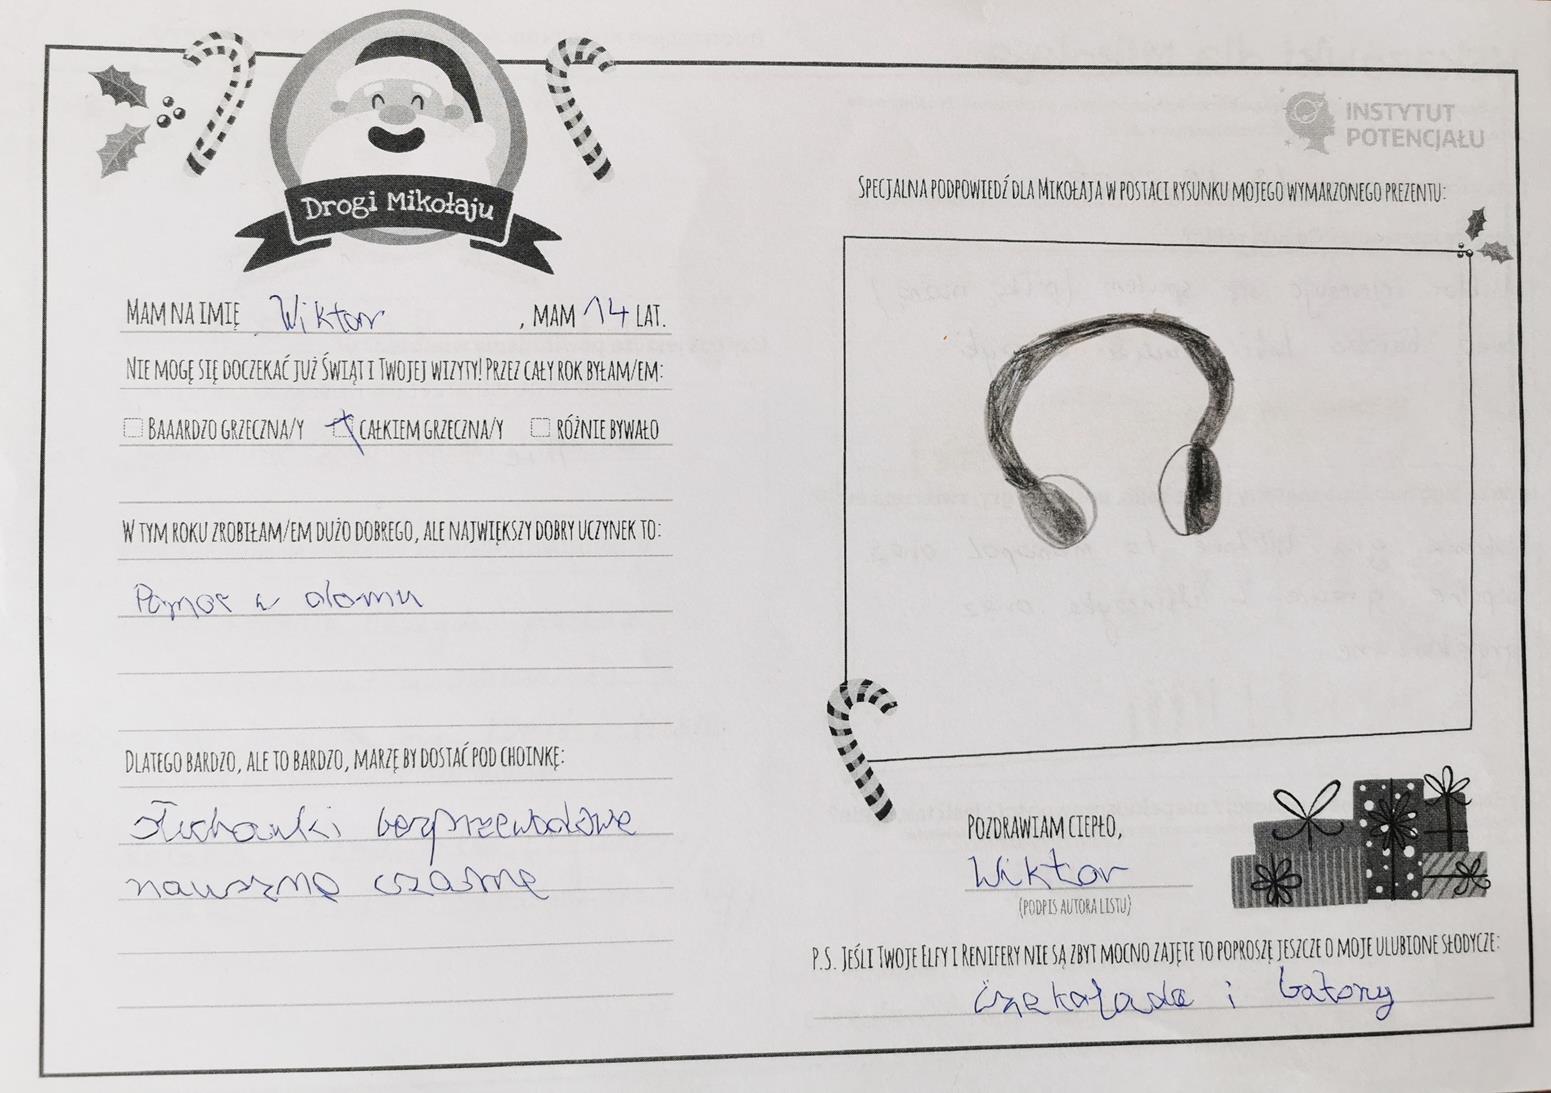 Drogi Mikołaju
MAM NA IMIĘ Wiktor, MAM 14 LAT.
NIE MOGĘ SIĘ DOCZEKAĆ JUŻ ŚWIĄT I TWOJEJ WIZYTY! PRZEZ CAŁY ROK BYŁAM/EM:
BAAARDZO GRZECZNA/Y CAŁKIEM GRZECZNA/Y RÓŻNIE BYWAŁO
W TYM ROKU ZROBIŁAM/EM DUŻO DOBREGO, ALE NAJWIĘKSZY DOBRY UCZYNEK TO:
Pomoc w domu
DLATEGO BARDZO, ALE TO BARDZO, MARZĘ BY DOSTAĆ POD CHOINKĘ:
słuchawki bezprzewodowe
nauszne czarne
INSTYTUT
POTENCJAŁU
SPECJALNA PODPOWIEDŹ DLA MIKOŁAJA W POSTACI RYSUNKU MOJEGO WYMARZONEGO PREZENTU:
POZDRAWIAM CIEPŁO,
Wiktor
(PODPIS AUTORA LISTU)
P.S. JEŚLI TWOJE ELFY I RENIFERY NIE SĄ ZBYT MOCNO ZAJĘTE TO POPROSZĘ JESZCZE O MOJE ULUBIONE SŁODYCZE:
czekolada i batony